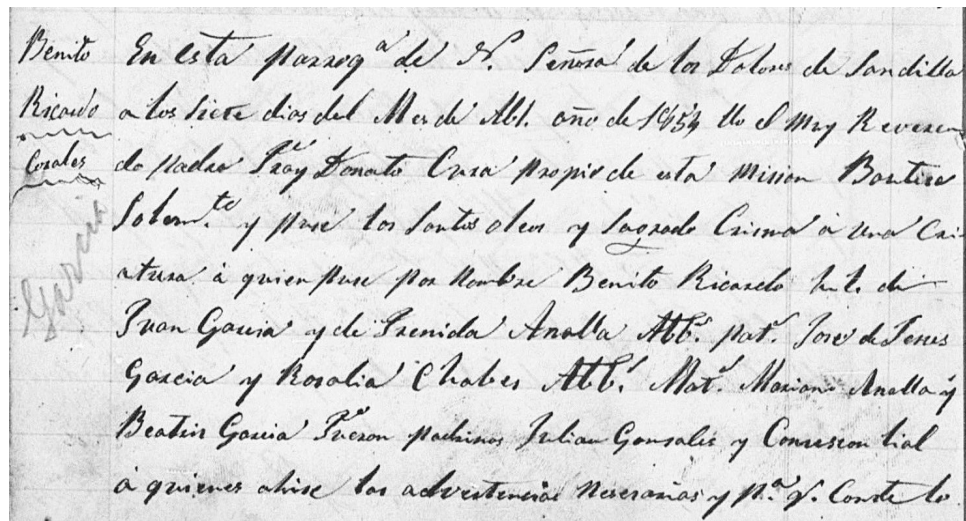 Benito
Ricardo
Corales
Garcia
En esta parroq.a de N. Señora de los Dolores de Sandilla
a los siete dias del Mes de Abl. año de 1854 Yo el muy Reveren
do padre Fray Donato Cura propio de esta Mision Bautise
Solem.te y puse los Santos oleos y Sagrado Crisma á una Cri
atura á quien puse por nombre Benito Ricardo h. l. de
Juan Garcia y de Trenida Analla Abb.s pat.s Jose de Jesus
Garcia y Rosalia Chabes Abb.s Mat.s Mariano Analla y
Beatris Garcia Fueron padrinos Julian Gonsales y Concecion
á quienes abise las advertencias nesesarias y p.a q. Conste lo